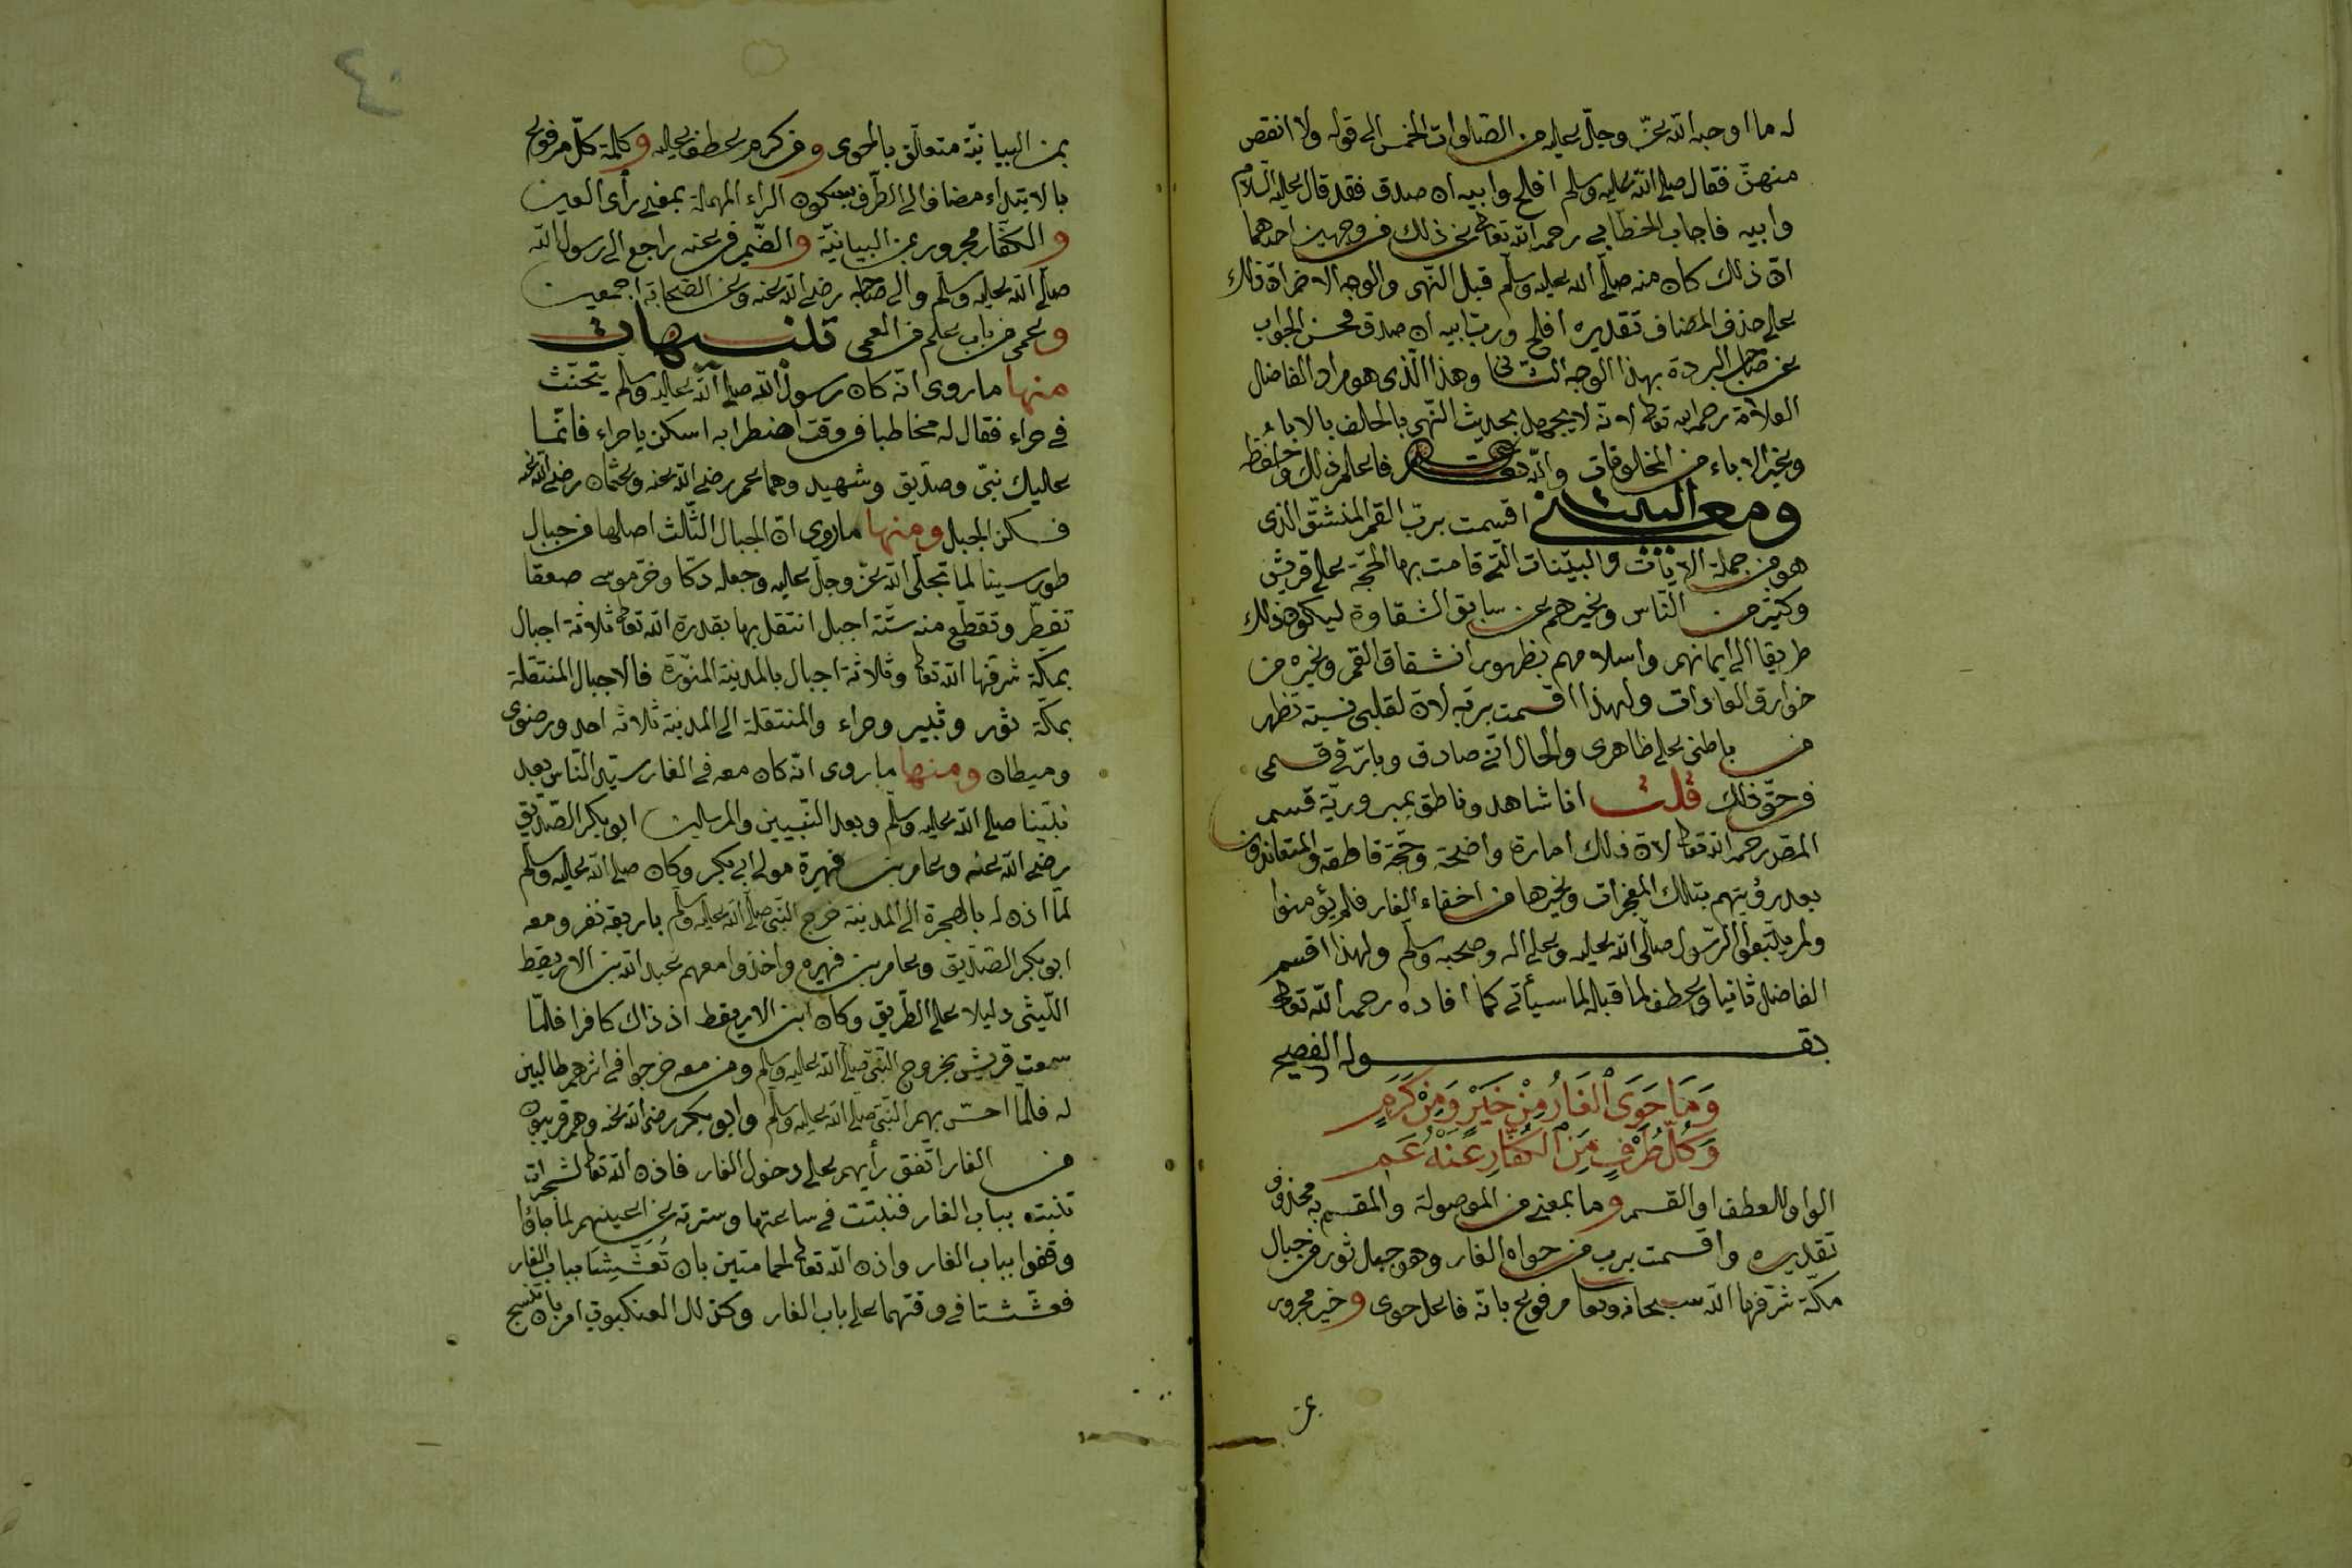 له ما اوجبه الله عزّ وجلّ عليه من الصّلوات الخمس الى قوله ولا انقص
منهنّ فقال صلى الله عليه وسلم افلح وابيه ان صدق فقد قال عليه السلام
وابيه فاجاب الخطّابي رحمه الله تعالى عن ذلك من وجهين احدهما
انّ ذلك كان منه صلّى الله عليه وسلّم قبل النّهى والوجه الاخر انّ ذلك
على حذف المضاف تقديره افلح وربّ ابيه ان صدق فحسن الجواب
عن صاحب البردة بهذا الوجه الثّانى وهذا الّذى هو مراد الفاضل
العلامة رحمه الله تعالى لانّه لا يجهل بحديث النّهى بالحلف بالاباء
وغير الاباء من المخلوقات والله تعالى فاعلم ذلك واحفظه
ومعنى البيت اقسمت بربّ القمر المنشقّ الذى
هو من جملة الايات والبيّنات الّتى قامت بها الحجّة على قريش
وكثير من النّاس وغيرهم عن سابق الشقاوة ليكون ذلك
طريقا الى ايمانهم واسلامهم بظهور انشقاق القمر وغيره من
خوارق العادات ولهذا اقسمت بربّه لانّ لقلبى نسبة تظهر
من باطنى على ظاهرى والحال انّى صادق وبارّ فى قسمى
فى حقّ ذلك قلت انا شاهد وناطق بمبروريّة قسم
المقصد رحمه الله تعالى لانّ ذلك امارة واضحة وحجّة قاطعة والمتعاندون
بعد رؤيتهم بتلك المعجزات وغيرها من اخفاء الغار فلم يؤمنوا
ولم يتّبعوا الرّسول صلّى الله عليه وعلى اله وصحبه وسلّم ولهذا اقسم
الفاضل ثانيا وعطف لما قبله لما سيأتى كما افاده رحمه الله تعالى
بقوله الفصيح
وَمَا حَوَى الْغَارُ مِنْ خَيْرٍ وَمِنْ كَرَمٍ
وَكُلُّ طَرْفٍ مِنَ الْكُفَّارِ عَنْهُ عَمِ
الواو للعطف او القسم وما بمعنى من الموصولة والمقسم به محذوف
تقديره واقسمت برب من حواه الغار وهو جبل ثور من جبال
مكّة شرّفها الله سبحانه وتعالى مرفوع بانّه فاعل حوى وخير مجرور
بمن
٤٠
بمن البيانيّة متعلّق بالحوى ومن كرم عطف عليه وكلمة كلّ مرفوع
بالابتداء مضاف الى الطّرف بسكون الراء المهملة بمعنى رأى العين
والكفّار مجرور بمن البيانيّة والضّمير فى عنه راجع الى رسول الله
صلّى الله عليه وسلّم والى صاحبه رضى الله عنه وعن الصّحابة اجمعين
وعمى من باب علم من العمى تنبيهات
منها ما روى انّه كان رسول الله صلى الله عليه وسلّم يتحنّث
فى حراء فقال له مخاطبا فى وقت اضطرابه اسكن يا حراء فانّما
عليك نبىّ وصدّيق وشهيد وهما عمر رضى الله عنه وعثمان رضى الله عنه
فسكن الجبل ومنها ما روى انّ الجبال الثّلث اصلها من جبال
طور سينا لما تجلّى الله عزّ وجلّ عليه وجعله دكّا وخرّ موسى صعقا
تفطّر وتقطّع منه ستّة اجبل انتقل بها بقدرة الله تعالى ثلاثة اجبال
بمكّة شرّفها الله تعالى وثلاثة اجبال بالمدينة المنوّرة فالاجبال المنتقلة
بمكّة ثور وثبير وحراء والمنتقلة الى المدينة ثلاثة احد ورضوى
وميطان ومنها ما روى انّه كان معه فى الغار سيّد النّاس بعد
نبيّنا صلى الله عليه وسلّم وبعد النّبيين والمرسلين ابو بكر الصّدّيق
رضى الله عنه وعامر بن فهيرة مولى ابى بكر وكان صلى الله عليه وسلم
لمّا اذن له بالهجرة الى المدينة خرج النّبىّ صلّى الله عليه وسلّم باربعة نفر ومعه
ابو بكر الصّدّيق وعامر بن فهيره واخذوا معهم عبد الله بن الاريقط
اللّيثى دليلا على الطّريق وكان ابن الاريقط اذ ذاك كافرا فلمّا
سمعت قريش بخروج النّبىّ صلّى الله عليه وسلم ومن معه خرجوا فى اثرهم طالبين
له فلما احسّ بهم النّبىّ صلّى الله عليه وسلّم وابو بكر رضى الله عنه وهم قريبون
من الغار اتّفق رأيهم على دخول الغار فاذن الله تعالى لشجرات
تنبته بباب الغار فنبتت فى ساعتها وسترته عن اعينهم لما جاؤا
وقفوا بباب الغار واذن الله تعالى لحمامتين بان تُعَشِّشَا بباب الغار
فعشّشتا فى وقتهما على باب الغار وكذلك العنكبوت امر بان تنسج